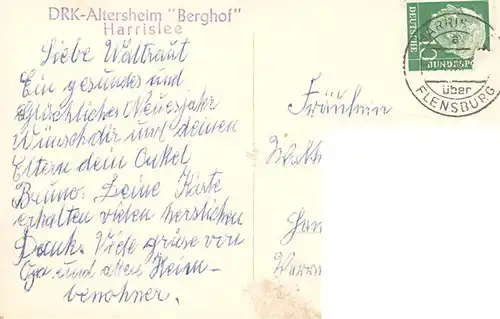 DRK-Altersheim "Berghof"
Harrislee
Liebe Waltraut
Ein gesundes und
glückliches Neuesjahr
Wünscht dir und deinen
Eltern dein Onkel
Bruno. Deine Karte
erhalten vielen herzlichen
Dank. Viele grüse von
Opa und allen Heim-
bewohner.
DEUTSCHE
BUNDESPOST
HARRISLEE
über
FLENSBURG
Fräulein